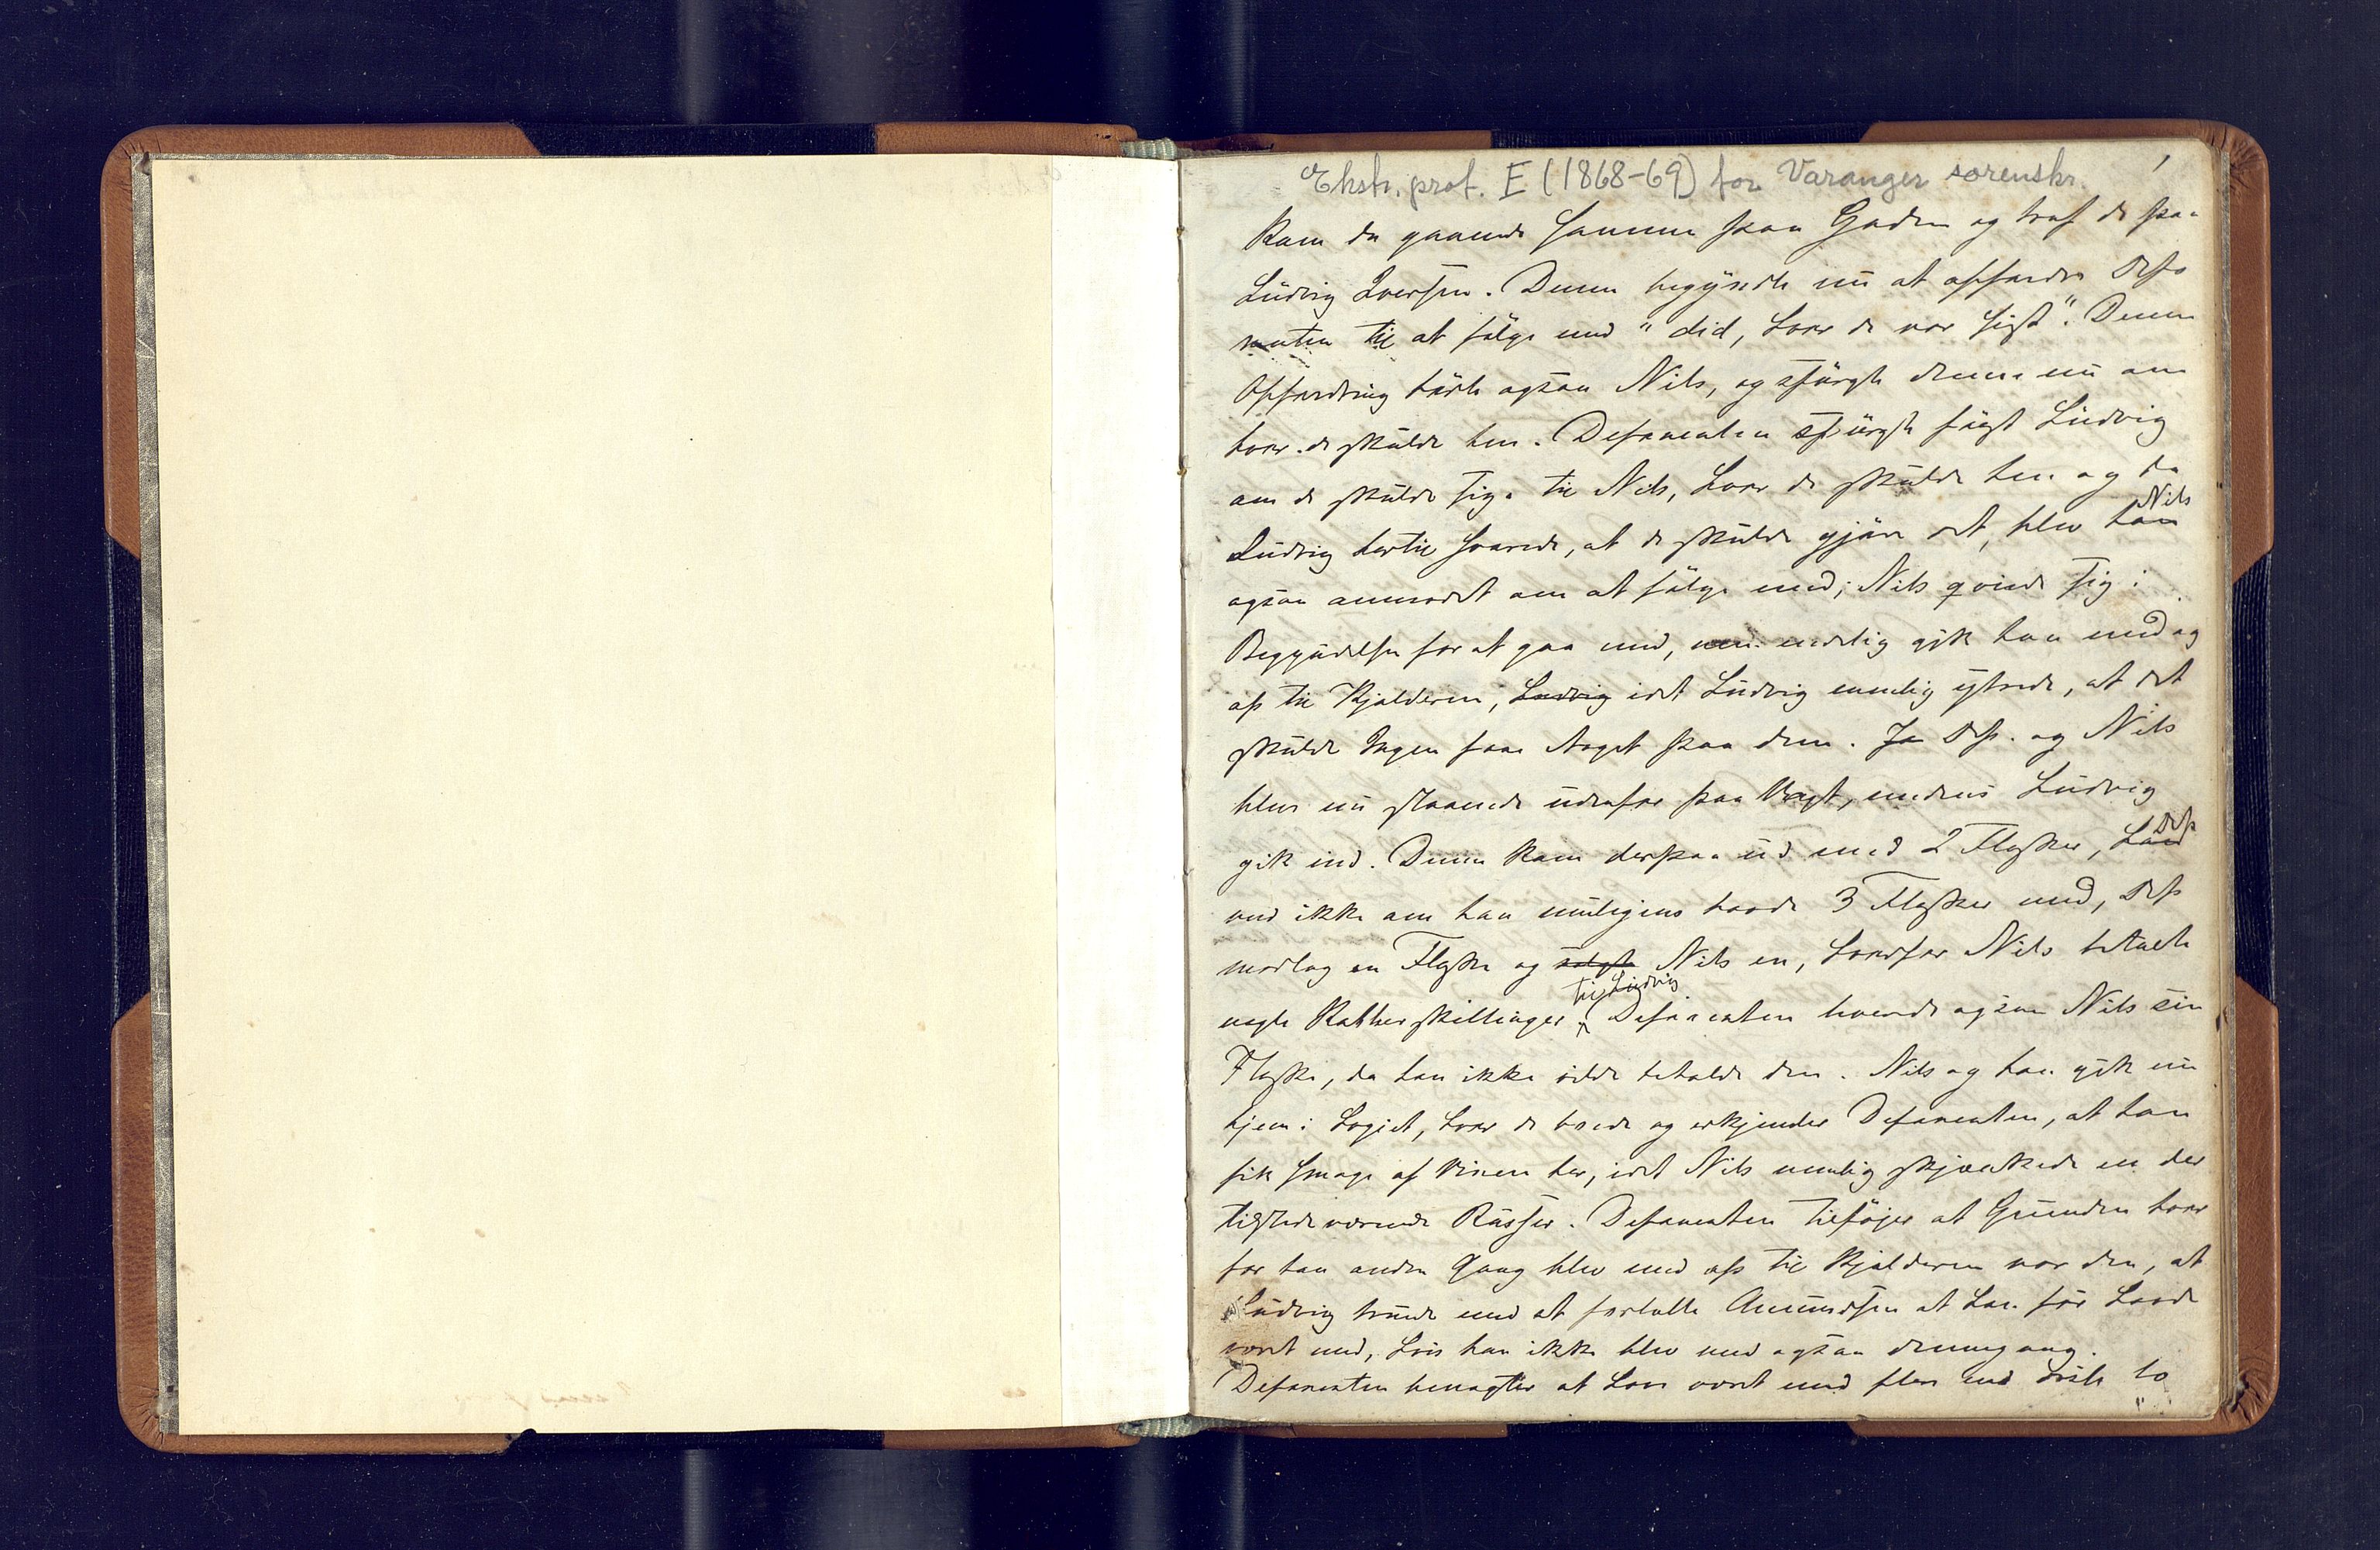 Ekstr. prot. E (1868-69) for Varanger sorenskr.
1
kom da gaaende sammen paa Gaden og traf de paa
Ludvig Iversen. Denne begyndte nu at opfordre Depo
nenten til at følge med "did, hvor de var sist". Denne
Opfordring hørte ogsaa Nils, og spurgte denne nu om
hvor de skulde hen. Deponenten spurgte først Ludvig
om de skulde sige til Nils, hvor de skulde hen og da
Ludvig hertil svarede, at de skulde gjøre det, blev han Nils
ogsaa anmodet om at følge med; Nils qvinde sig i
Begyndelsen for at gaa med, men endelig gik han med og
op til Kjelderen, Ludvig idet Ludvig nemlig ytrede, at det
skulde Ingen faa Noget paa dem. Ja Dep. og Nils
blev nu staaende udenfor paa Vagt, medens Ludvig
gik ind. Denne kom derpaa ud med 2 Flasker, Dep
ved ikke om han muligens havde 3 Flasker med, Dep
modtog en Flaske og solgte Nils en, hvorfor Nils betalte
nogle Kobberskillinger til Ludvig Deponenten leverede ogsaa Nils sin
Flaske, da han ikke vilde beholde den. Nils og han gik nu
hjem i Logiet, hvor de boede og erkjender Deponenten, at han
fik smage af Vinen her, idet Nils nemlig skjænkede en der
tilstedeværende Russer. Deponenten tilføjer at Grunden hvor
for han anden Gang blev med op til Kjelderen var den, at
Ludvig truede med at fortælle Amundsen at han før havde
været med, hvis han ikke blev med ogsaa dennegang.
Deponenten benægter at have været med flere end disse to